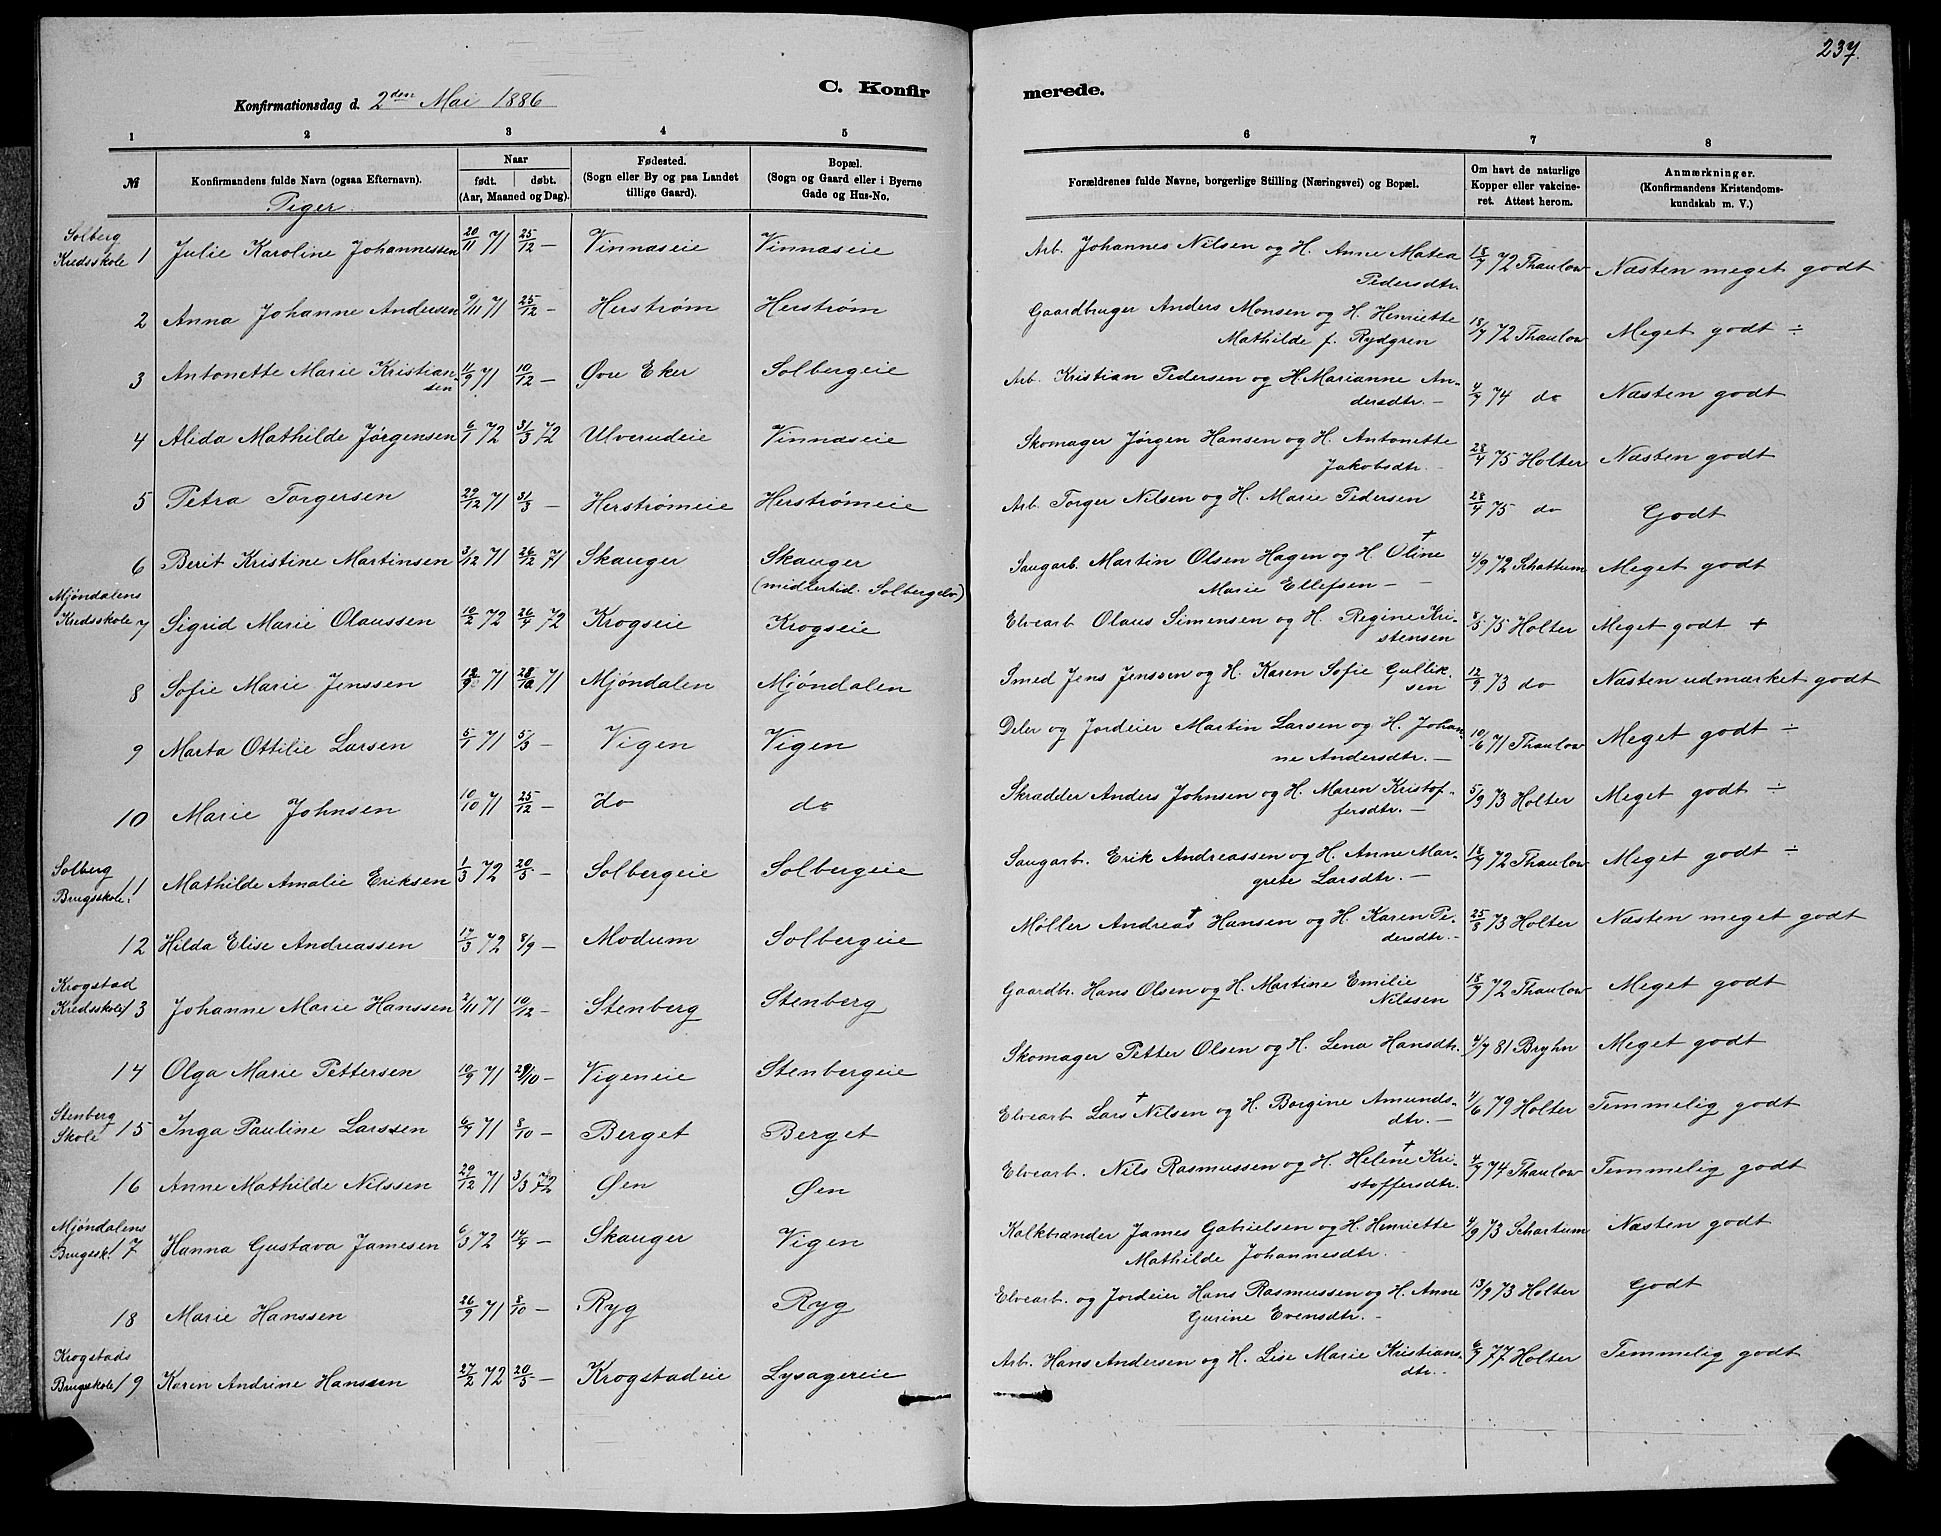 237.
C. Konfirmerede.
Konfirmationsdag d. 2den Mai 1886
1 2 3 4 5 6 7 8
№ Konfirmandens fulde Navn (ogsaa Efternavn). Naar født. døbt. (Aar, Maaned og Dag). Fødested. (Sogn eller By og paa Landet tillige Gaard). Bopæl. (Sogn og Gaard eller i Byerne Gade og Hus-No. Forældrenes fulde Navne, borgerlige Stilling (Næringsvei) og Bopæl. Om havt de naturlige Kopper eller vakcineret. Attest herom. Anmærkninger. (Konfirmandens Kristendomskundskab m. V.)
Piger.
Solberg Kredsskole 1 Julie Karoline Johannessen 20/11 71 25/12 — Vinnaseie Vinnaseie Arb. Johannes Nilsen og H. Anne Matea Pedersdtr. 18/7 72 Thaulow Næsten meget godt
2 Anna Johanne Andersen 9/11 71 25/12 — Herstrøm Herstrøm Gaardbruger Anders Monsen og H. Henriette Mathilde f. Rydgren 18/7 72 Thaulow Meget godt ÷
3 Antonette Marie Kristiansen 11/9 71 10/12 — Øvre Eker Solbergeie Arb. Kristian Pedersen og H. Marianne Andersdtr. — 4/9 74 do Næsten godt
4 Alida Mathilde Jørgensen 6/1 72 31/3 72 Ulverudeie Vinnaseie Skomager Jørgen Hansen og H. Antonette Jakobsdtr. — 28/4 75 Holter Næsten godt
5 Petra Torgersen 29/12 71 31/3 — Herstrømeie Herstrømeie Arb. Torger Nilsen og H. Marie Pedersen 28/4 75 do Godt
6 Berit Kristine Martinsen 3/12 71 26/12 71 Skauger Skauger (midlertid. Solbergelv) Saugarb. Martin Olsen Hagen og H. Oline † Marie Ellefsen — 4/9 72 Schartum Meget godt
Mjøndalens Kredsskole 7 Sigrid Marie Olaussen 10/2 72 26/4 72 Krogseie Krogseie Elvearb Olaus Simensen og H. Regine Kristensen 8/5 75 Holter Meget godt +
8 Sofie Marie Jenssen 71 71 Mjøndalen Mjøndalen Smed Jens Jenssen og H. Karen Sofie Gulliksen 12/9 73 do Næsten udmærket godt
9 Marta Ottilie Larsen 5/1 71 5/3 — Vigen Vigen Deler og Jordeier Martin Larsen og H. Johanne Andersdtr. — 10/6 71 Thaulow Meget godt ÷
10 Marie Johnsen 10/10 71 25/12 — do do Skrædder Anders Johnsen og H. Maren Kristoffersdtr. — 5/9 73 Holter Meget godt ÷
Solberg Brugsskole 11 Mathilde Amalie Eriksen 1/3 72 20/5 — Solbergeie Solbergeie Saugarb. Erik Andreassen og H. Anne Margrete Larsdtr. — 18/7 72 Thaulow Meget godt ÷
12 Hilda Elise Andreassen 17/3 72 8/9 — Modum Solbergeie Møller Andreas † Hansen og H. Karen Pedersdtr. — 25/8 73 Holter Næsten meget godt
Krogstad Kredsskole 13 Johanne Marie Hanssen 2/11 71 10/12 — Stenberg Stenberg Gaardbr. Hans Olsen og H. Martine Emilie Nilssen 18/7 72 Thaulow Meget godt
14 Olga Marie Pettersen 10/9 71 29/10 — Vigeneie Stenbergeie Skomager Petter Olsen og H. Lena Hansdtr. 4/7 81 Bryhn Meget godt
Stenberg Skole 15 Inga Pauline Larssen 6/7 71 8/10 — Berget Berget Elvearb Lars † Nilsen og H. Borgine Amundsdtr. — 4/6 79 Holter Temmelig godt
16 Anne Mathilde Nilssen 29/12 71 3/3 72 Øen Øen Elvearb. Nils Rasmussen og H. Helene † Kristoffersdtr. 4/9 74 Thaulow Temmelig godt
Mjøndalens Brugssk. 17 Hanna Gustava Jamesen 6/3 72 14/4 — Skauger Vigen Kalkbrænder James Gabrielsen og H. Henriette Mathilde Johannesdtr. 4/9 73 Schartum Næsten godt
18 Marie Hanssen 26/9 71 8/10 — Ryg Ryg Elvearb. og Jordeier Hans Rasmussen og H. Anne Gurine Evensdtr. — 13/9 73 Holter Godt
Krogstads Brugsskole 19 Karen Andrine Hanssen 27/2 72 20/5 — Krogstadeie Lysagereie Arb. Hans Andersen og H. Lise Marie Kristiansdtr. 6/7 77 Holter Temmelig godt